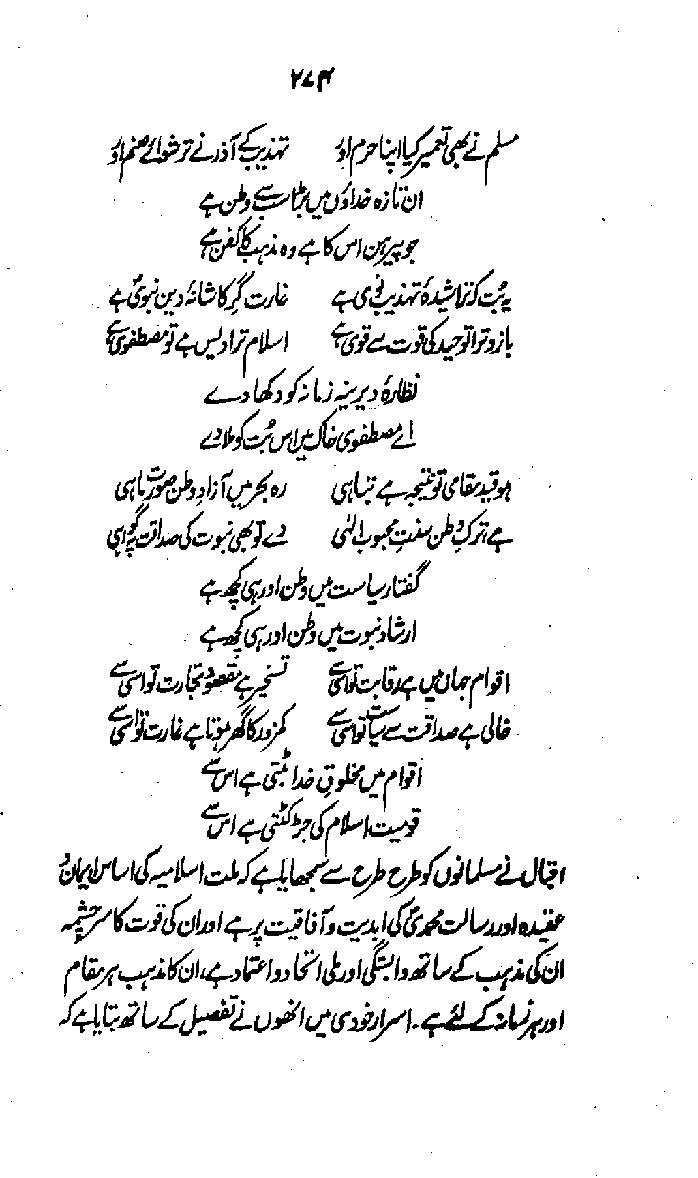 ۲۷۴
مسلم نے بھی تعمیر کیا اپنا حرم اور تہذیب کے آذر نے ترشوائے صنم اور
ان تازہ خداؤں میں بڑا سب سے وطن ہے
جو پیرہن اس کا ہے وہ مذہب کا کفن ہے
یہ بُت کہ تراشیدۂ تہذیب نوی ہے غارت گرِ کاشانۂ دین نبویؐ ہے
بازو ترا توحید کی قوت سے قوی ہے اسلام ترا دیس ہے تو مصطفوی ہے
نظارۂ دیرینہ زمانہ کو دکھا دے
اے مصطفوی خاک میں اس بُت کو ملا دے
ہو قید مقامی تو نتیجہ ہے تباہی رہ بحر میں آزاد وطن صورت ماہی
ہے ترکِ وطن سنتِ محبوب الٰہی دے تو بھی نبوت کی صداقت پہ گواہی
گفتار سیاست میں وطن اور ہی کچھ ہے
ارشاد نبوت میں وطن اور ہی کچھ ہے
اقوام جہاں میں ہے رقابت تو اسی سے تسخیر ہے مقصودِ تجارت تو اسی سے
خالی ہے صداقت سے سیاست تو اسی سے کمزور کا گھر ہوتا ہے غارت تو اسی سے
اقوام میں مخلوقِ خدا بٹتی ہے اس سے
قومیت اسلام کی جڑ کٹتی ہے اس سے
اقبال نے مسلمانوں کو طرح طرح سے سمجھایا ہے کہ ملت اسلامیہ کی اساس ایمان و
عقیدہ اور رسالت محمدیؐ کی ابدیت و آفاقیت پر ہے اور ان کی قوت کا سرچشمہ
ان کی مذہب کے ساتھ وابستگی اور ملی اتحاد و اعتماد ہے، ان کا مذہب ہر مقام
اور ہر زمانہ کے لئے ہے۔ اسرار خودی میں انھوں نے تفصیل کے ساتھ بتایا ہے کہ